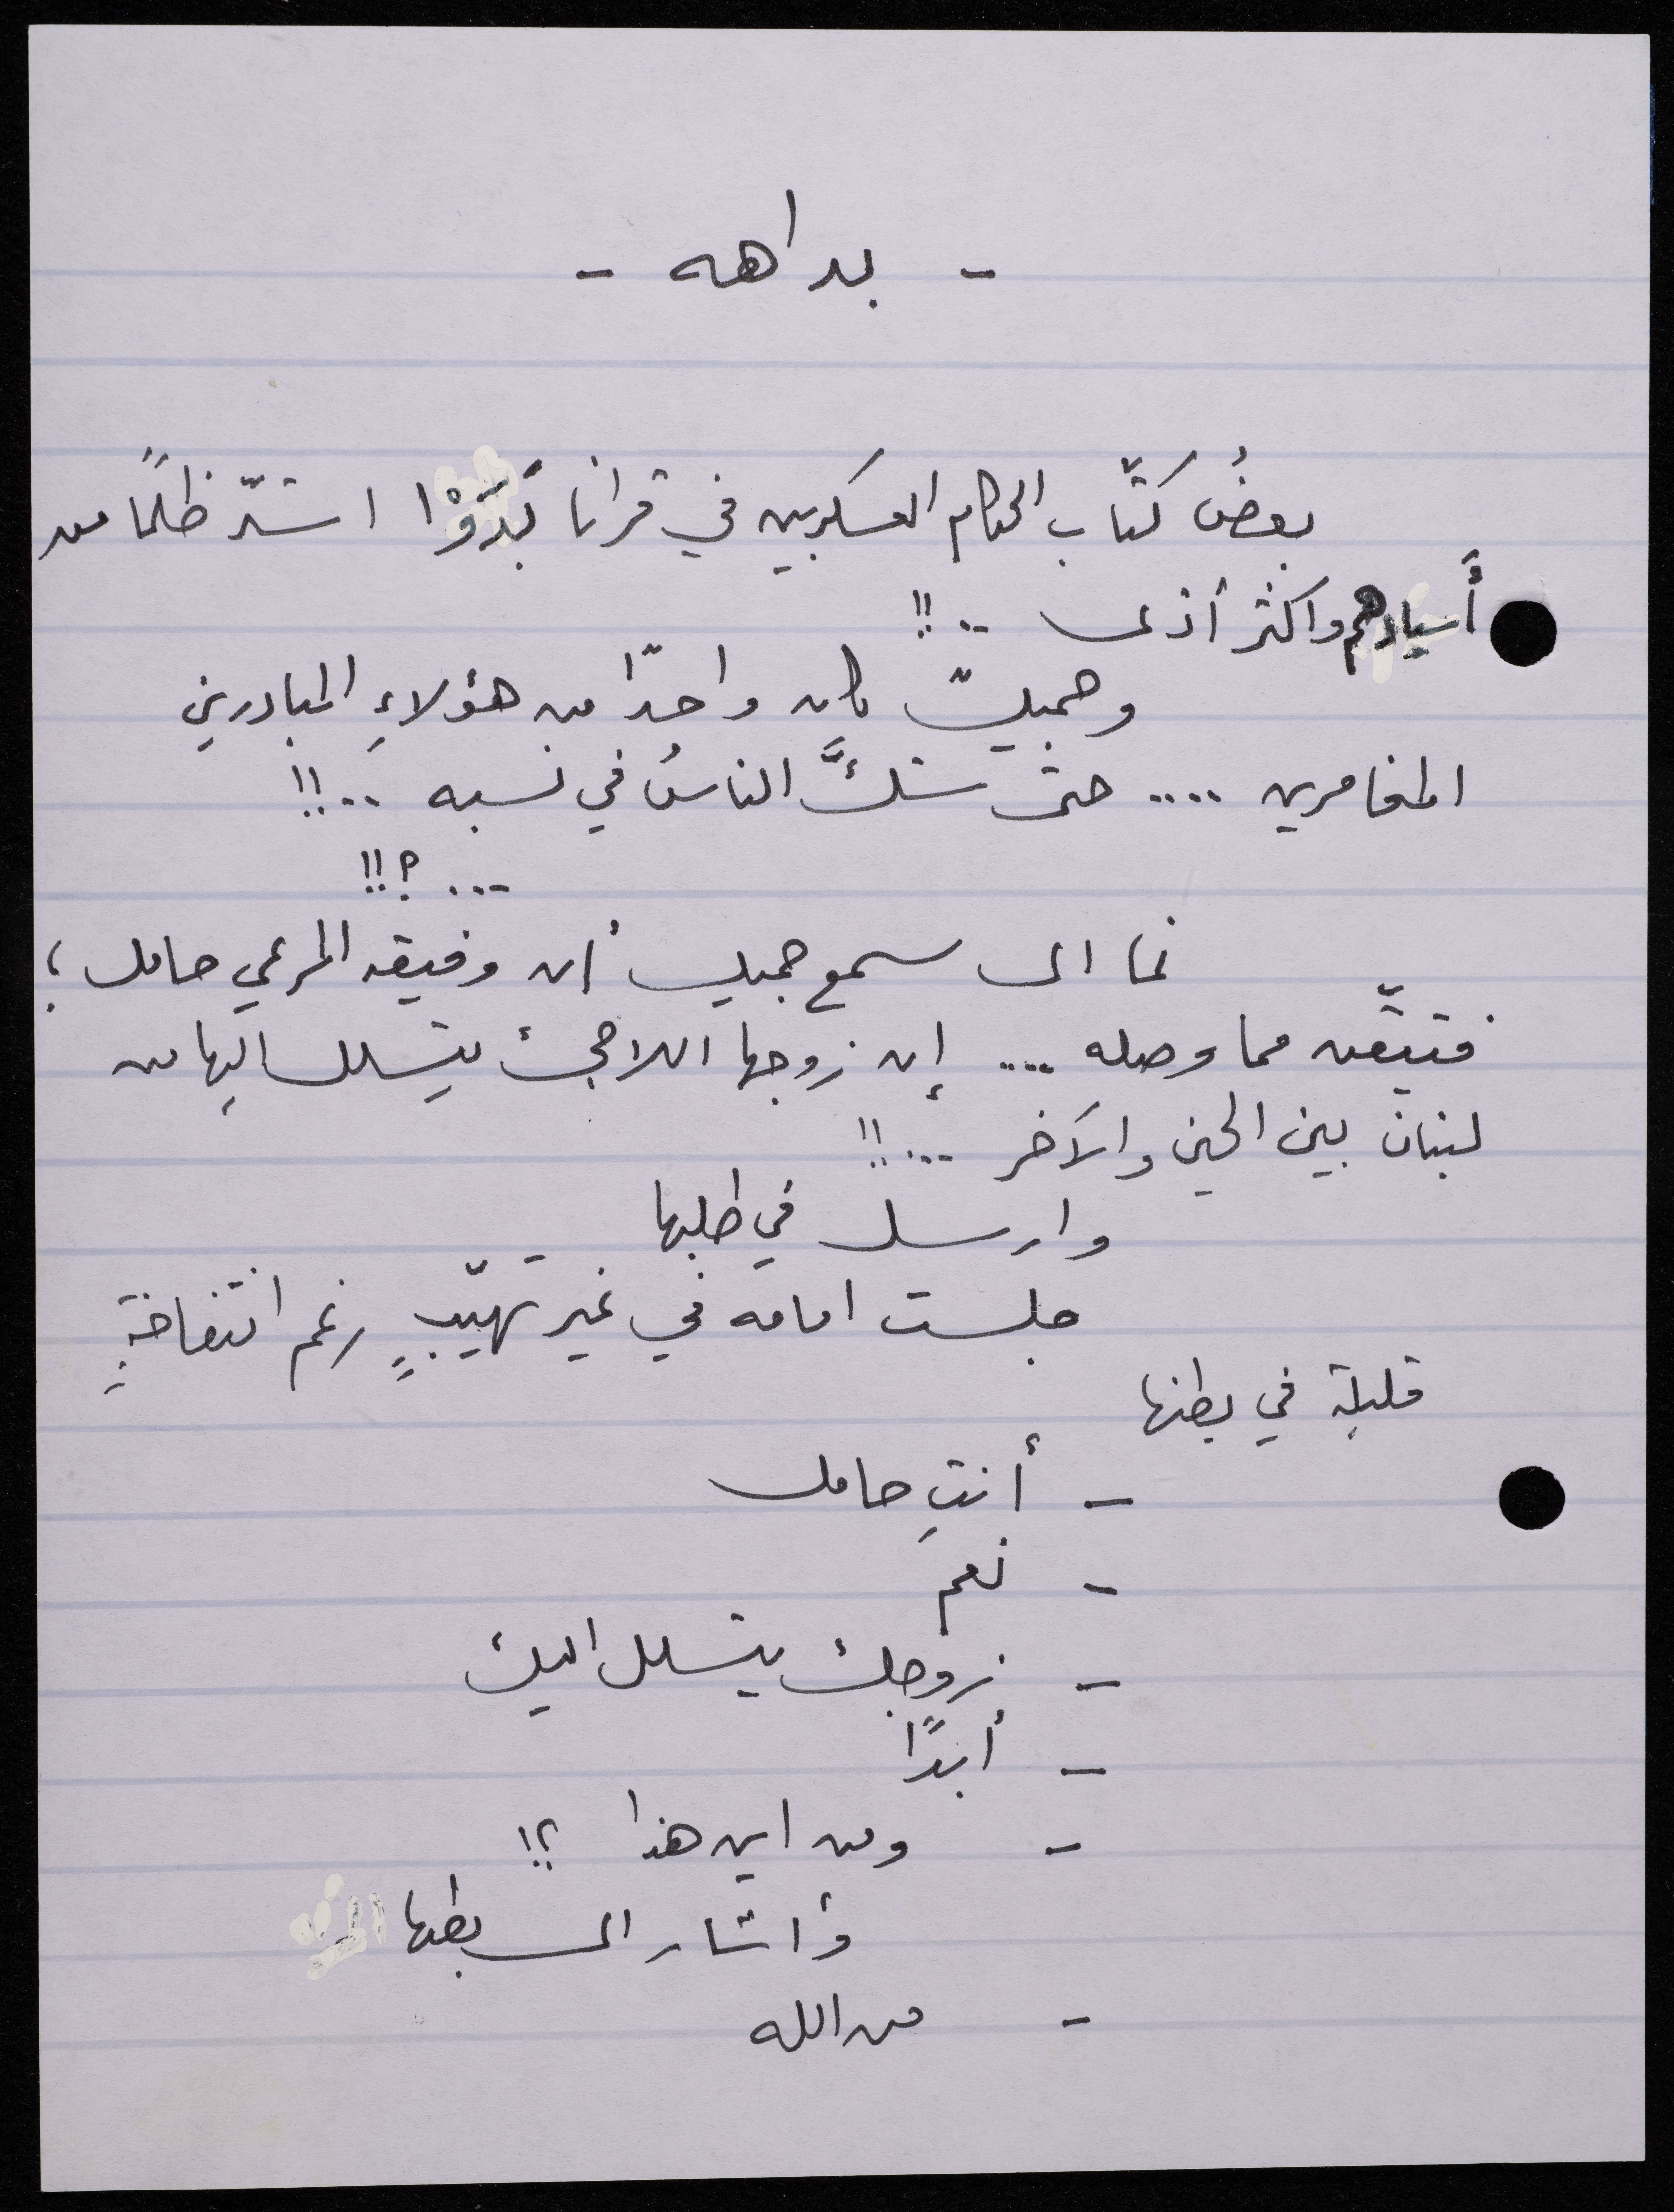 - بداهه -
بعضُ كتّاب الحكام العسكريين في قرانا بَدَوْا اشدّ ظلمًا من
أسيادهم واكثر أذى ..!!
وجميلٌ كان واحدًا من هؤلاءِ المبادرين
المغامرين .... حتى شكَّ الناسُ في نسبه ..!!
...؟!!
نما الى سمع جميل أن وفيقه المرعي حامل؛
فتيقّن مما وصله .... إن زوجها اللاجئ يتسلل اليها من
لبنان بين الحين والآخر ...!!
وارسل في طلبها
جلست امامه في غير تهيّبٍ رغم انتفاخةٍ
قليلة في بطنها
- أنتِ حامل
- نعم
- زوجك يتسلل اليك
- أبدًا
- ومن اين هذا ؟!
وأشار الى بطنها
- من الله